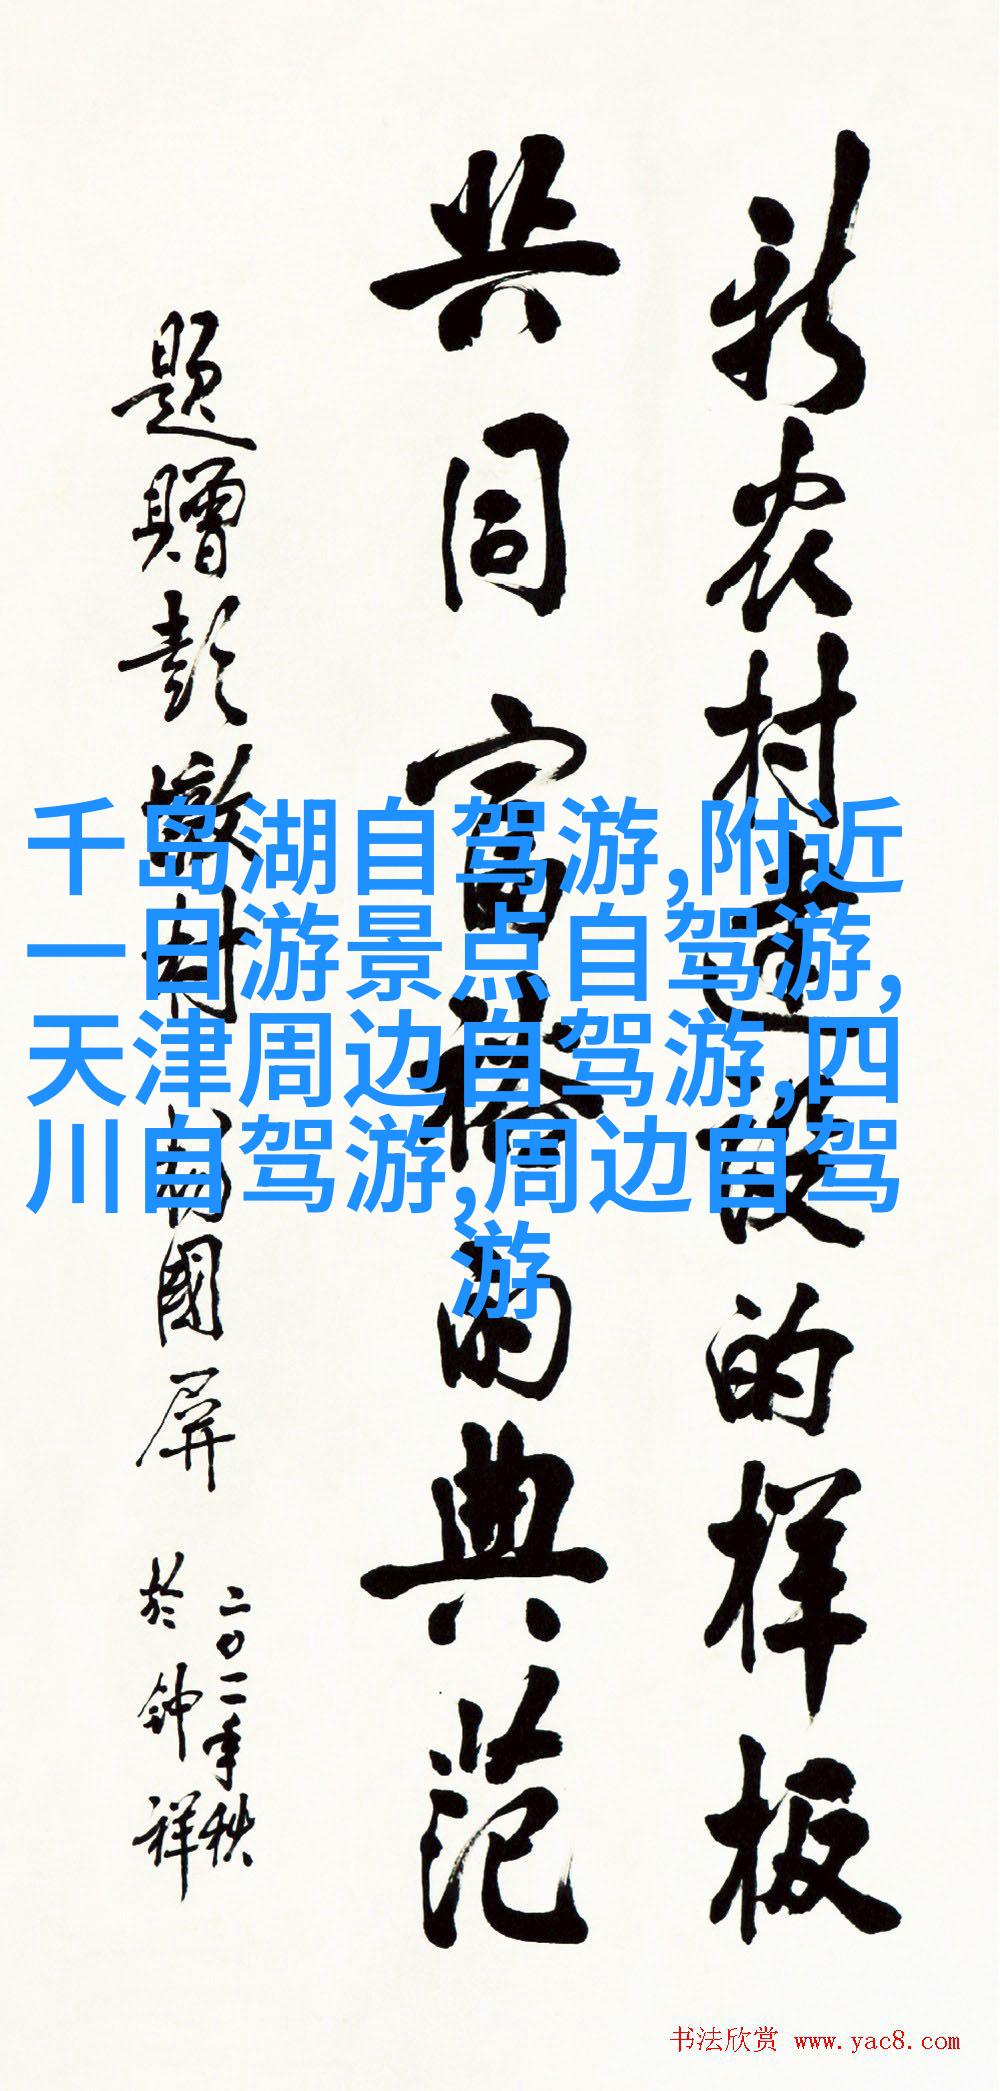 新农村建设的样板
共同富裕的典范
题赠彭墩村
国屏
二〇一一年秋
於钟祥
千岛湖自驾游,附近
一日游景点自驾游,
天津周边自驾游,四
川自驾游,周边自驾
游
书法欣赏 www.yac8.com